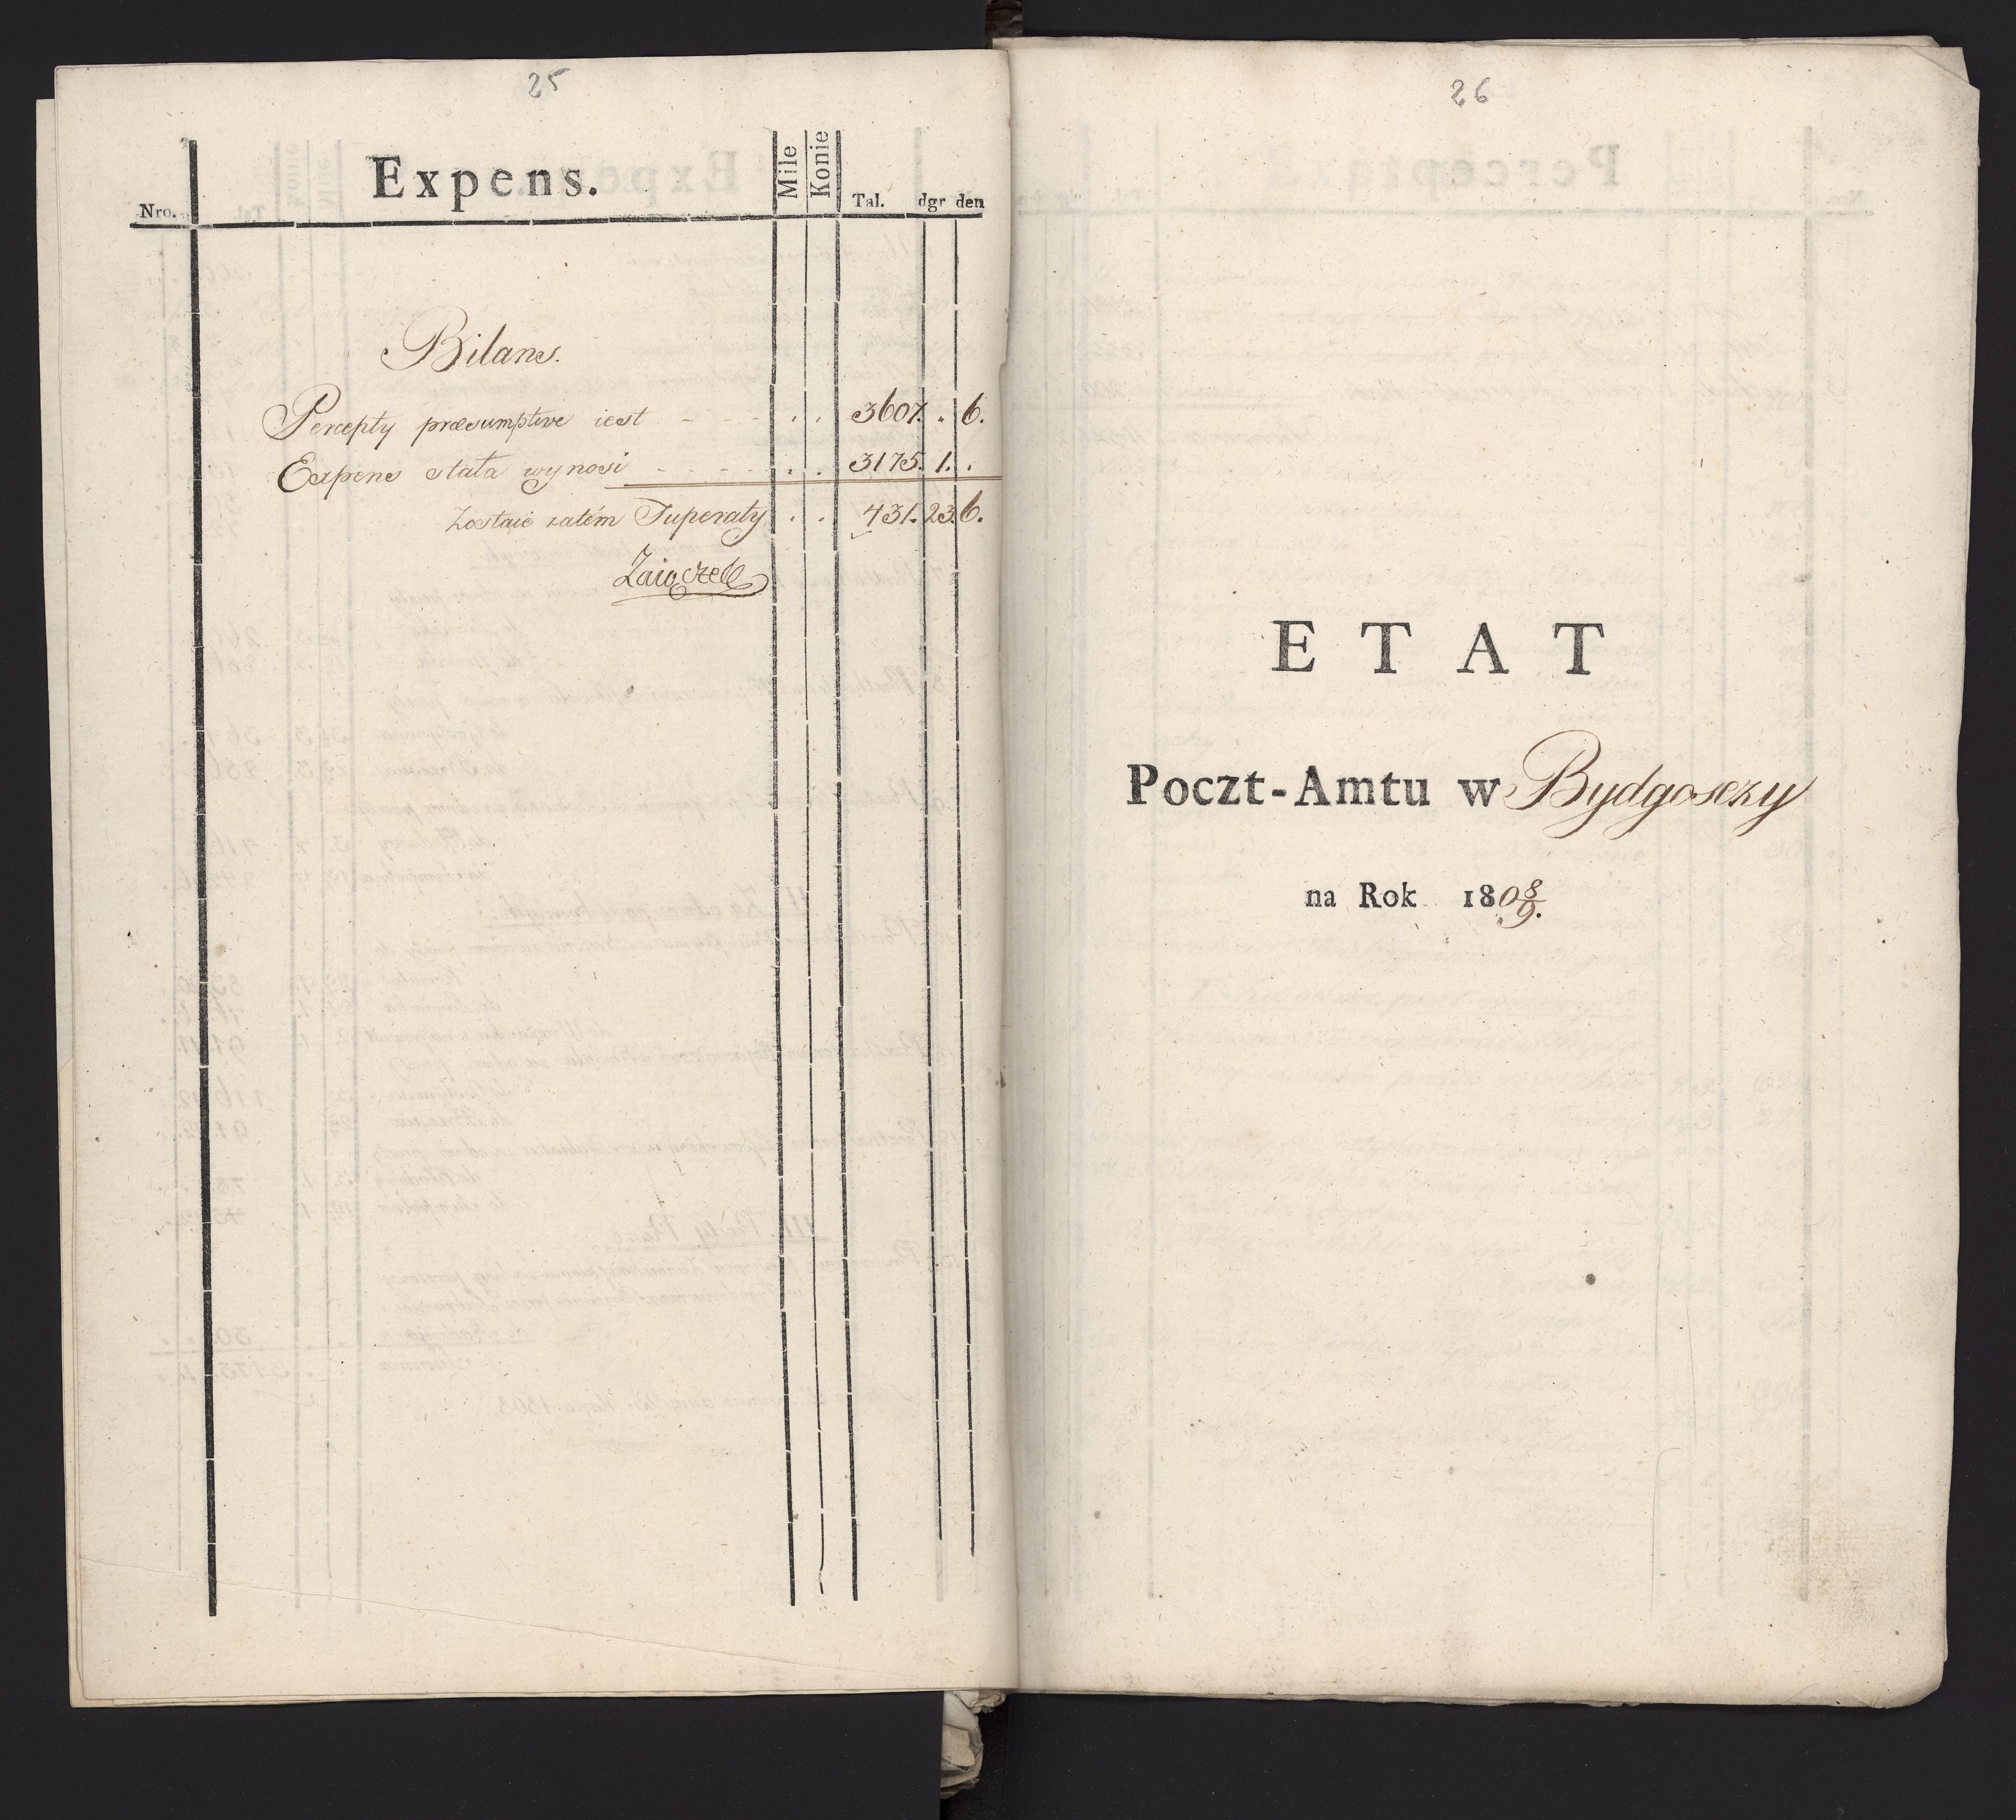 25
Nro. Expens. Mile Konie Tal. dgr den
Bilans.
Percepty præsumptive iest - - - . . 3607. . 6.
Expens stała wynosi - - - - . . 3175. 1. .
Zostaie zatém Superaty . . 431. 23. 6.
Zaiączek
26
ETAT
Poczt-Amtu w Bydgosczy
na Rok 180 8/9.